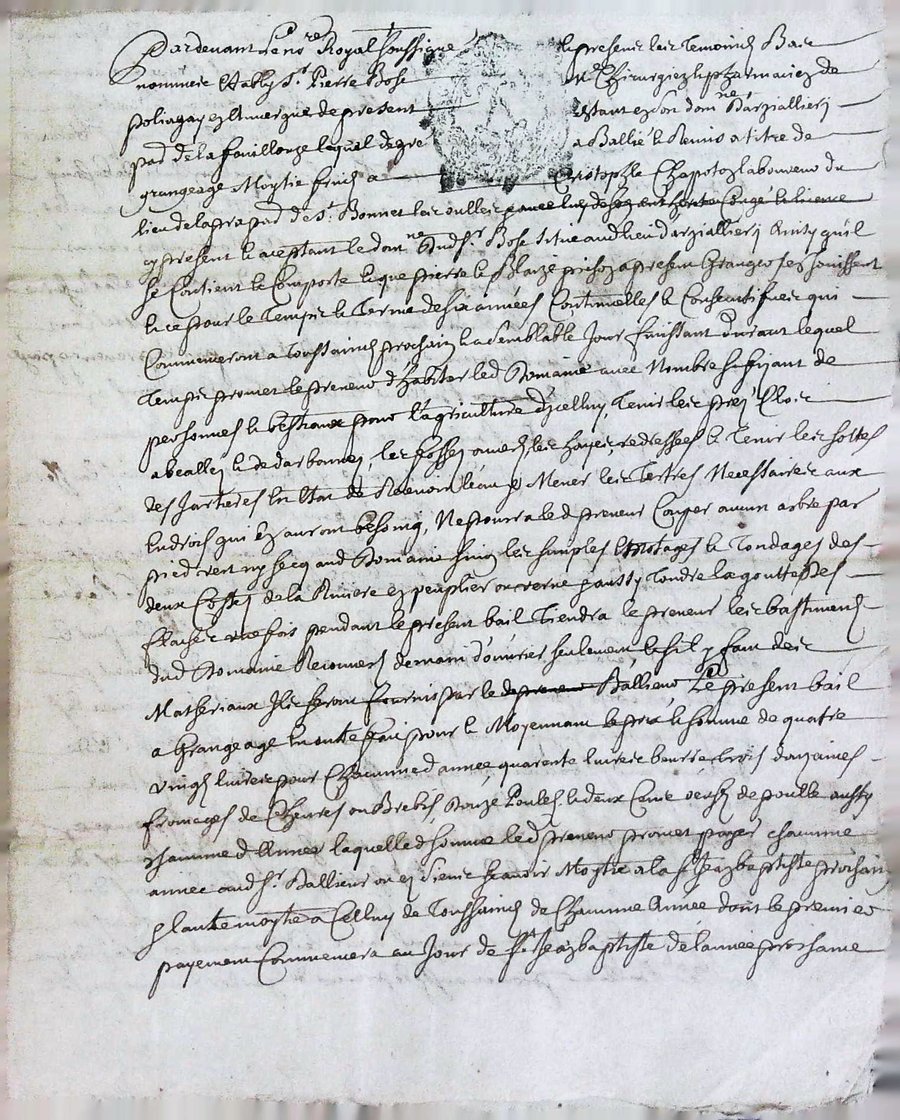 Pardevant Le no.re Royal soussigne & presens les temoins Bas
nommés Estably S.r Pierre Bose M.e Chirurgien & pharmacien de
polignay en Limergue de present Estant en son dom.ne Darzallier
par de la fouillouze lequel de gre a Ballié & Remis a titre de
grangeage Moytie fruis a Cristophle Chapotoz laboureur du
lieu de la pra par de S.t Bonnet les oulles
cy present & aceptant le dom.ne dud s.r Bose situe aud lieu darzallier Ainsy quil
se Contient & Comporte & que pierre & Blaize prison a present Grangers en Jouissent
& ce pour le Temps & Terme de six années Continuelles & Consecutifves qui
Commenceront a Toussaincts prochain & a semblable Jour finissant durant lequel
Temps promet le preneur d'habiter led Domaine avec Nombre sufizant de
personnes & bestiaux pour l'agriculture d'Icelluy, Tenir les prés Clos
les fosses ouvers, les hayes redressees & Tenir les
des Jartieres En Estat de Recevoir l'eau & Mener les Tertres Necessaires aux
Endrois qui En auront besoing, Ne pourra led preneur Couper aucun arbre par
pied vert ny secq aud Domaine sinon les simples Emotages & Tondages des
deux Costes de la Riviere en peuplier ou verne
une fois pendant le present bail Tiendra le preneur les bastimens
dud Domaine Recouvers de main d'ouvrier seulement & s'il y faut des
Matheriaux Ils seront fournis par le preneur Ballieur Le present bail
a Grangeage En outre fait pour & Moyennant le prix & somme de quatre
vingt livres pour Chacunne d année, quarente livres beurre trois douzaines
fromages de Chevres ou Brebis, douze Poules & deux Cent oeufs de poulle aussy
chacunne d Année laquelle d somme led preneur promet payer chacunne
annee aud S.r Ballieur ou es siens scavoir Moytie a la S.t Jean baptiste prochain
& l'autre moytie a Celluy de Toussaincts de Chacunne Année dont le premier
payement Commencera au Jour de S.t Jean baptiste de l'année prochaine